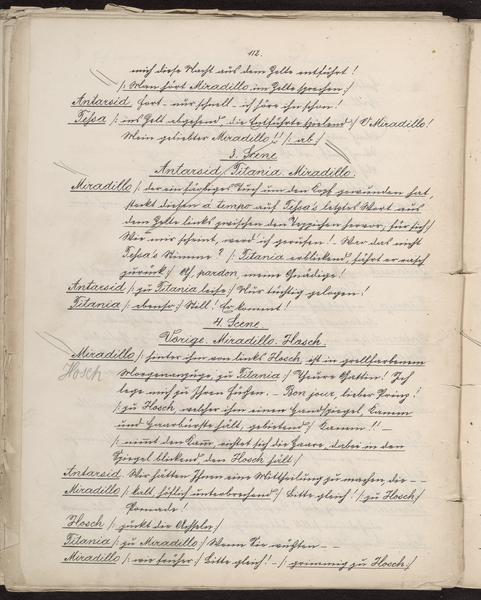 112.
mich diese Nacht aus dem Zelte entführt!
/: Man hört Miradillo im Zelte sprechen :/
Antarsid. Fort – nur schnell – ich höre ihn schon!
Tessa /: ins Zelt abgehend die Entführte spielend :/ O Miradillo!
Mein geliebter Miradillo!! /: ab :/
3. Scene.
Antarsid. Titania. Miradillo.
Miradillo /: der ein färbiges Tuch um den Kopf gewunden hat,
steckt diesen a tempo auf Tessa's letztes Wort aus
dem Zelte links zwischen den Teppichen hervor, für sich :/
Wie mir scheint, werd' ich gerufen! War das nicht
Tessa's Stimme? /: Titania erblickend, fährt er rasch
zurück :/ Oh, pardon, meine Gnädige!
Antarsid /: zu Titania leise :/ Nur tüchtig gelogen!
Titania /: ebenso :/ Still! Er kommt!
4. Scene.
Vorige. Miradillo. Hosch.
Miradillo /: hinter ihm von links Hosch, ist in grellfarbenem
Hosch
Morgenanzuge, zu Titania :/ Theure Gattin! Ich
lege mich zu Ihren Füßen. – Bon jour, lieber Prinz!
/: zu Hosch, welcher ihm einen Handspiegel, Kamm
und Haarbürste hält, gebietend :/ Kamm!! –
/: nimmt den Kamm, richtet sich die Haare, dabei in den
Spiegel blickend den Hosch hält :/
Antarsid. Wir hätten Ihnen eine Mittheilung zu machen die – –
Miradillo /: kalt, höflich unterbrechend :/ Bitte gleich! /: zu Hosch :/
Pomade!
Hosch /: zuckt die Achseln :/
Titania /: zu Miradillo :/ Wenn Sie wüßten – –
Miradillo /: wie früher :/ Bitte gleich! – /: grimmig zu Hosch :/